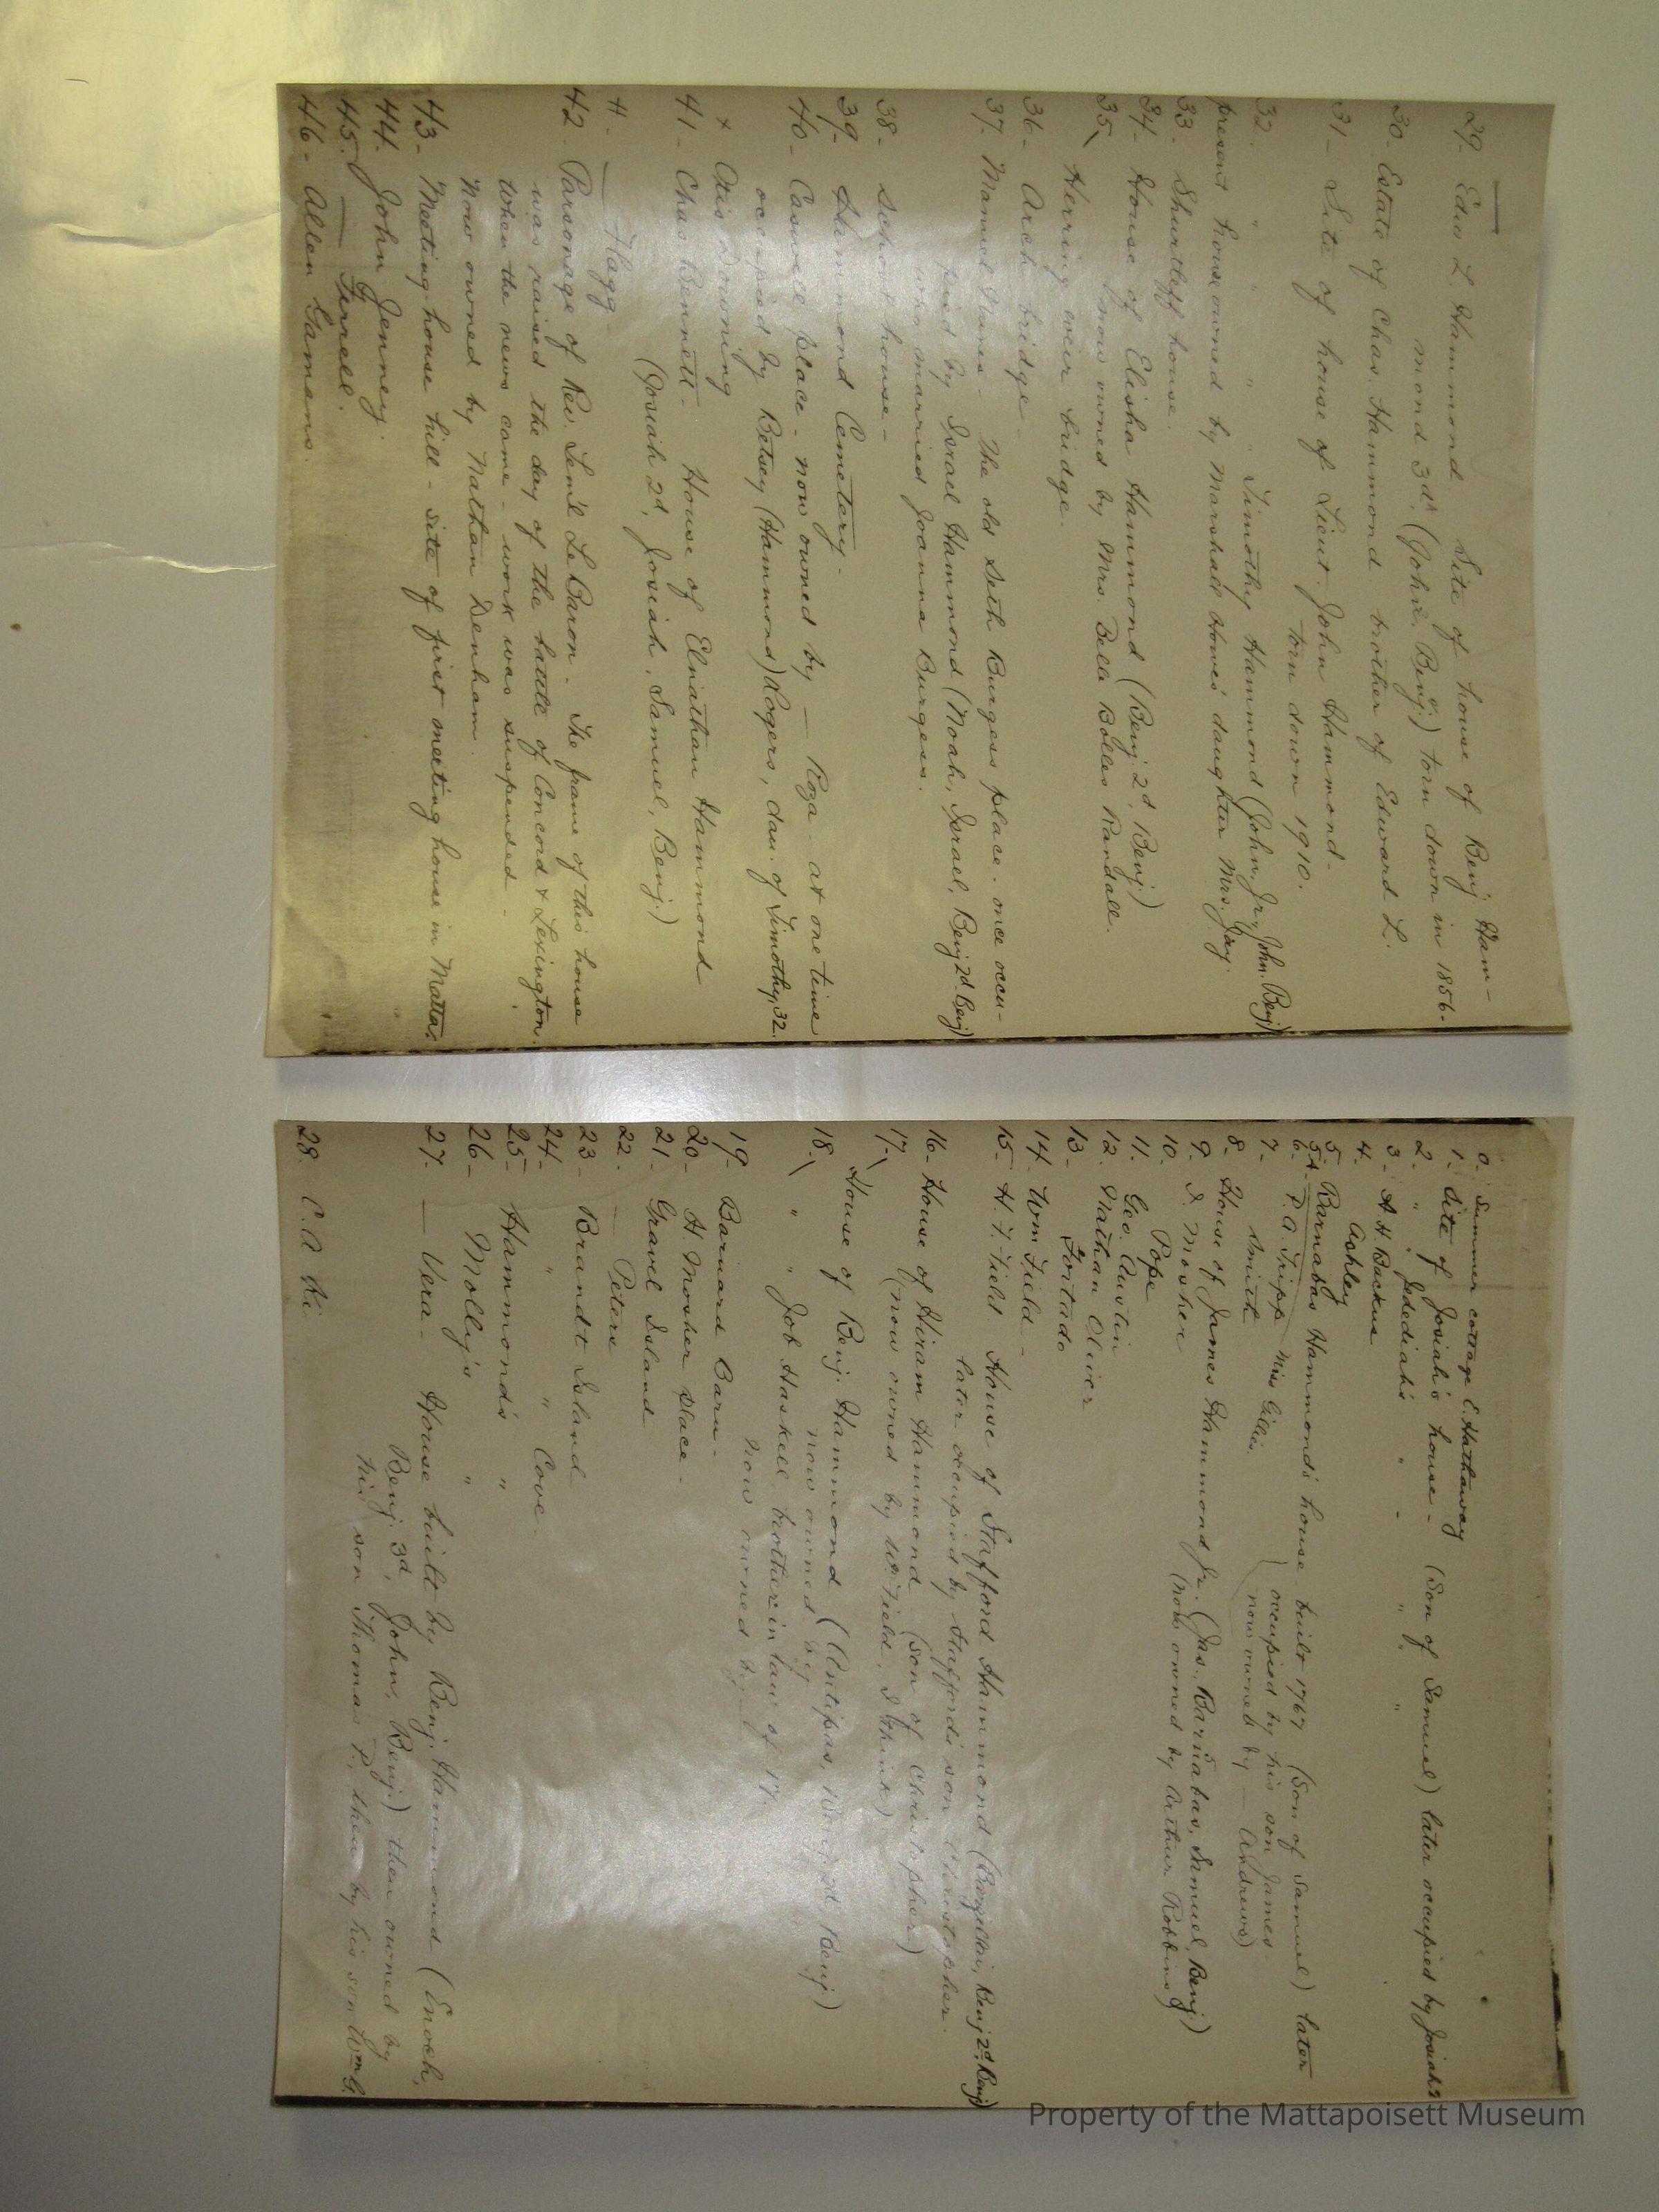 0. Summer cottage E. Hathaway
1. Site of Josiah's house - (Son of Samuel) later occupied by Josiah 2d
2. " " Jedediah's " - " "
3 - A. H. Backus
4. Ashley
5 Barnabas Hammond's house built 1767 (Son of Samuel) later
occupied by his son James
now owned by — Andrews)
5A. P. A. Tripp Miss Gillis.
6. Smith
7. House of James Hammond Jr. (Jas., Barnabas, Samuel, Benj.)
(now owned by Arthur Robbins)
8. I. Mosher
9. Pope
10. Geo. Austin
11. Nathan Oliver
12. Fortado
13. Wm Field -
14. H. F. Field
15 - House of Stafford Hammond ( Benj 2d, Benj)
later occupied by Stafford's son Christopher.
16 - House of Hiram Hammond (son of Christopher)
(now owned by W. Field, I think)
17. House of Benj. Hammond (Antipas, Benj)
now owned by
18. " " Job Haskell, brother in law of 17.
now owned by
19 - Barnard Barn -
20 - H. Mosher place -
21 - Gravel Island
22. — Peters
23 - Brandt Island
24. " " Cove.
25 - Hammond's "
26 - Molly's "
27. — Vera - House built by Benj. Hammond (Enoch,
Benj. 3d, John, Benj.) then owned by
his son Thomas P., then by his son Wm G.
28. C. A. Ki
29 - Edw L. Hammond Site of house of Benj Ham-
mond 3d, (John, Benj.) torn down in 1856 -
30 - Estate of Chas. Hammond brother of Edward L.
31 - Site of house of Lieut. John Hammond -
torn down 1910.
32. " " " " Timothy Hammond (John, Jr., John, Benj)
present house owned by Marshall Howes' daughter Mrs. Jay.
33 - Shurtleff house.
34 - House of Elisha Hammond (Benj 2d, Benj.)
now owned by Mrs. Bella Bolles Randall.
35 Herring weir bridge.
36 - Arch bridge -
37 - Manuel - The old Seth Burgess place - once occu-
pied by Israel Hammond (Noah, Israel, Benj 2d Benj)
who married Joanna Burgess.
38 - School house -
39 - Hammond Cemetery -
40 - Caswell place - now owned by — Roza - at one time
occupied by Betsey (Hammond) Rogers, dau. of Timothy, 32.
x Otis Downing
41 - Chas Bennett - House of Elnathan Hammond
(Josiah 2d, Josiah, Samuel, Benj.)
— Flagg -
42 - Parsonage of Rev. Lem'l Le Baron - The frame of this house
was raised the day of the battle of Concord & Lexington.
When the news come - work was suspended -
Now owned by Nathan Denham.
43 - Meeting house hill - site of first meeting house in Matta.
44. John Jenney.
45. — Ferrell.
46 - Allen Gamans.
Property of the Mattapoisett Museum